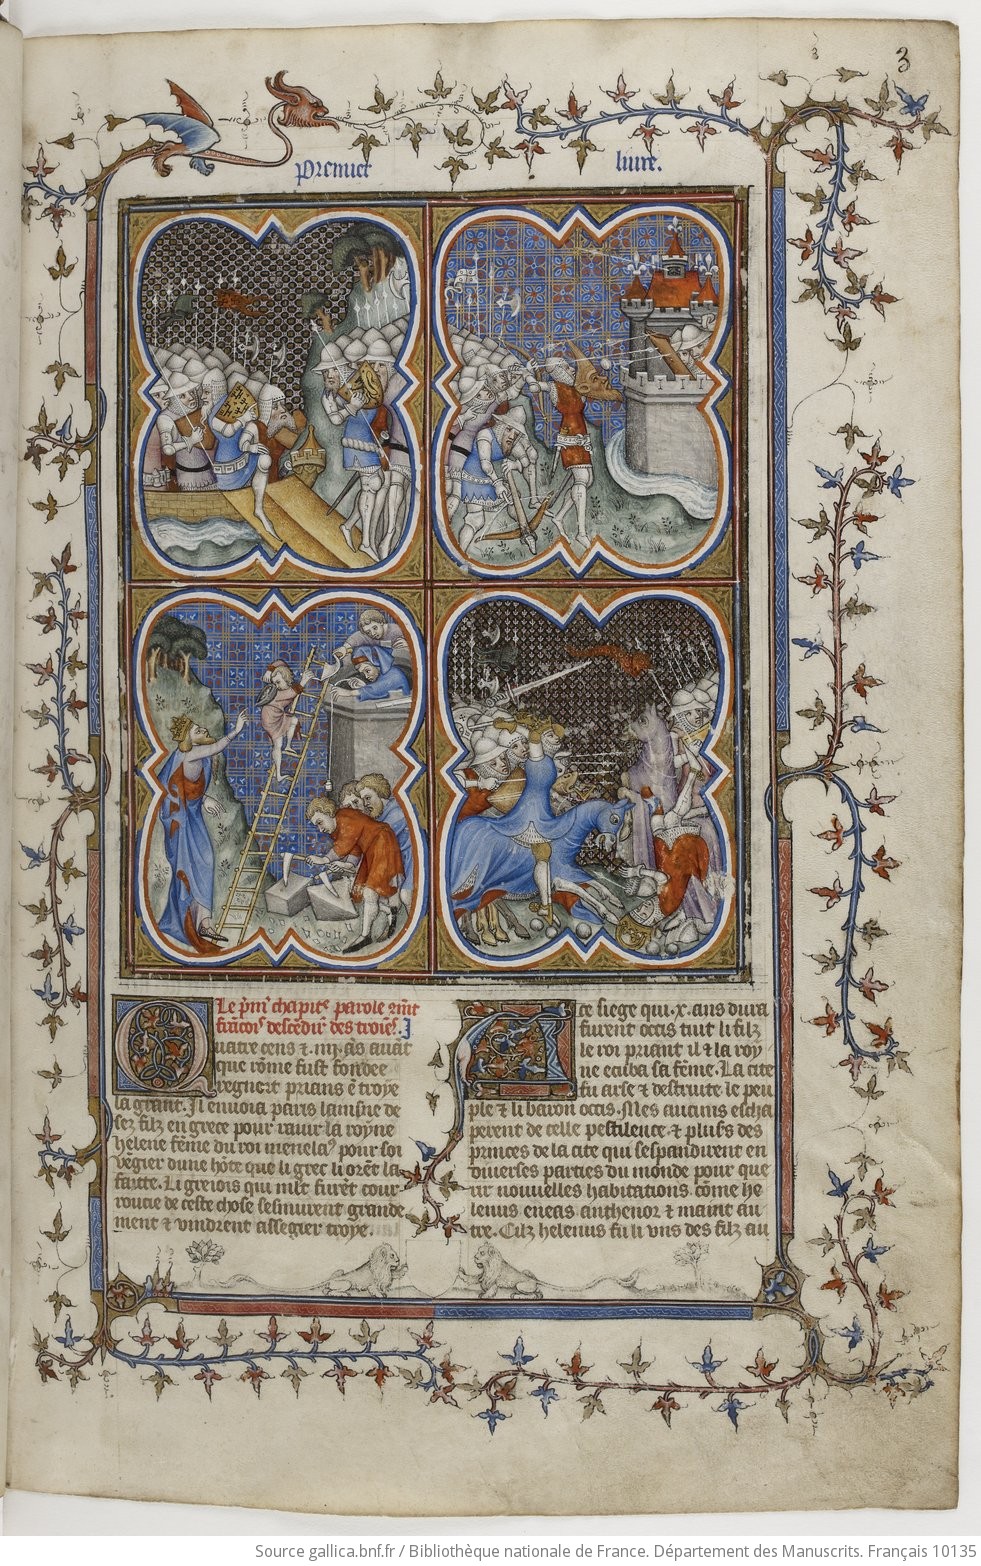 3
Premier liure.
Le p̄m̄ chapitᵉ parole 9m̄t
francoıˢ descēdirͭ des troıēˢ. I
Quatre cens ⁊ .iiij. ās auāt
que rōme fust fondee
regnert prians ē troye
la grant. Il enuoia paris lainsne de
sez filz en grece pour rauir la royne
helene fēme du roi menelaˢ pour soi
vēgier dune hōte que li grec li orēt ia
faicte. Li greiois qui ml't furēt cour
roucie de ceste chose sesmurent grande
ment ⁊ vindrent assegier troye.
A ce siege qui .x. ans dura
furent occis tuit li filz
le roi priant il ⁊ la roy
ne ecuba sa fēme. La cite
fu arse ⁊ destruite le peu
ple ⁊ li baron occis. Mes aucuns escha
perent de celle pestilence ⁊ plusˢ des
princes de la cite qui sespandirent en
diuerses parties du monde pour que
rir nouuelles habitations. cōme he
lenus eneas anthenor ⁊ maint au
tre. Cilz helenus fu li vns des filz au
Source gallica.bnf.fr / Bibliothèque nationale de France. Département des Manuscrits. Français 10135